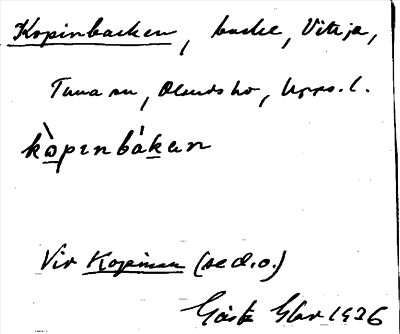 Kopinbacken, backe, Vitija,
Tuna sn, Olands hd, Upps. l.
kòpinbákan
Vid Kopinan (se d.o.)
Gösta 1936